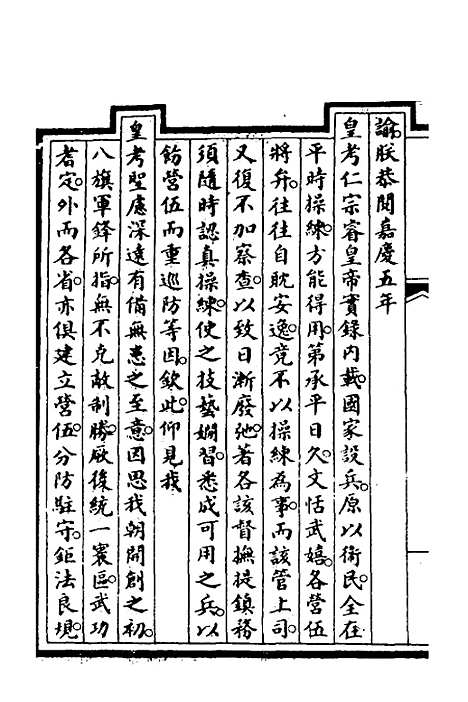 諭朕恭閱嘉慶五年
皇考仁宗睿皇帝實錄內載國家設兵原以衛民全在
平時操練方能得用第承平日久文恬武嬉各營伍
將弁往往自耽安逸竟不以操練為事而該管上司
又復不加察查以致日漸廢弛著各該督撫提鎮務
須隨時認真操練使之技藝嫺習悉成可用之兵以
飭營伍而重巡防等因欽此仰見我
皇考聖慮深遠有備無患之至意因思我朝開創之初
八旗軍鋒所指無不克敵制勝厥後統一寰區武功
耆定外而各省亦俱建立營伍分防駐守鉅法良規